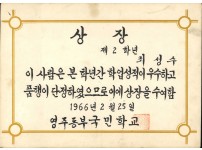 상장
제2학년
최성수
이 사람은 본 학년간 학업성적이 우수하고
품행이 단정하였으므로 이에 상장을 수여함
1966년 2월 25일
영주동부국민학교